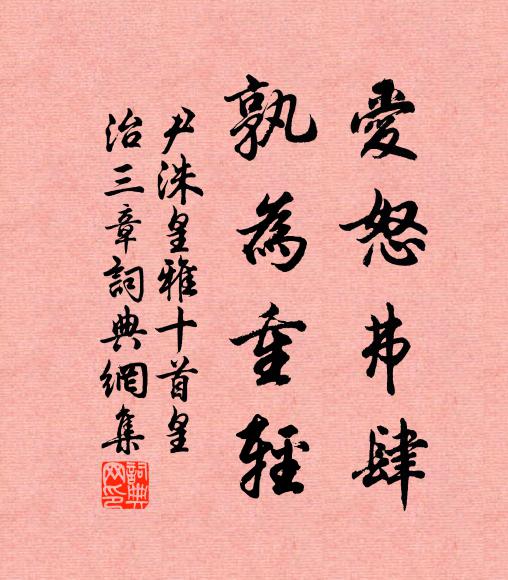 愛怒弗肆
孰為重輕
尹洙皇雅十首皇
治三章詞典網集
詞典网印